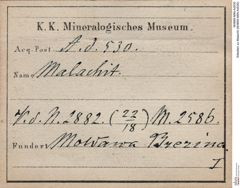 K. K. Mineralogisches Museum.
Acq.-Post A. d. 530.
Name Malachit.
V. d. N. 2882. (22/18) M. 2586.
Fundort Moldawa Brezina
I